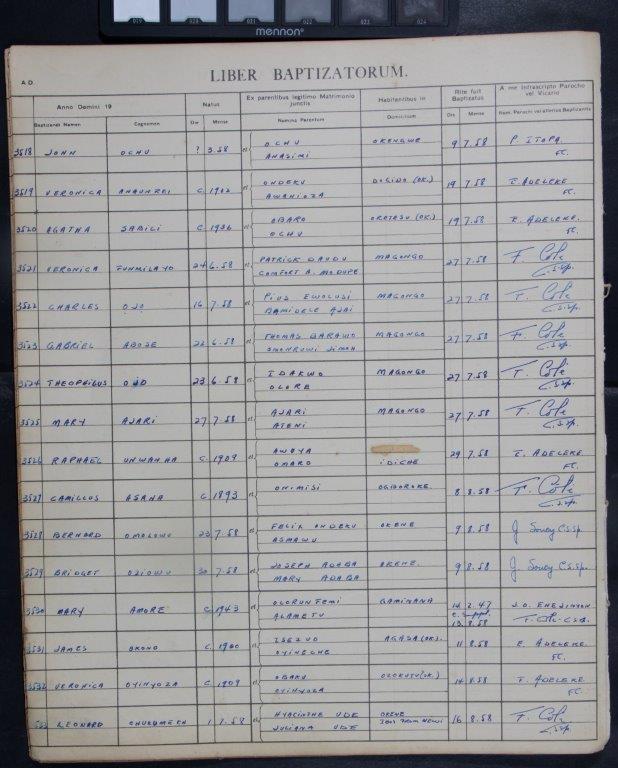 019 023 024
mennon
LIBER BAPTIZATORUM.
A.D.
Anno Domini 19 Natus Ex parentibus legitimo Matrimonio junctis Habitantibus in Rite fuit Baptizatus A me infrascripto Parocho vel Vicario
Baptizandi Nomen Cognomen Die Mense Nomina Parentum Domicilium Die Mense Nom. Parochi vel alterius Baptizantis
3518 JOHN OCHU ? 3.58 et OCHU ANASIMI OKENGWE 9 7.58 P. ITOPA. FC.
3519 VERONICA C. 1902 et ONDEKU AWANIOZA (OK.) 19 7.58 E. ADELEKE FC.
3520 AGATHA SABILI C 1936 et OBARO OCHU (OK.) 19 7.58 E. ADELEKE. FC.
3521 VERONICA FUNMILAYO 24 6.58 et PATRICK DAUDU COMFORT A. MODUPE MAGONGO 27 7.58 F. Cole C.S.Sp.
3522 CHARLES OJO 16 7.58 et PIUS EWOLUSI BAMIDELE AJAI MAGONGO 27 7.58 F. Cole C.S.Sp.
3523 GABRIEL ABOJE 22 6.58 et THOMAS BARAWO JIMOH MAGONGO 27 7.58 F. Cole C.S.Sp.
3524 THEOPHILUS OJO 23 6.58 et IDAKWO OLORE MAGONGO 27 7.58 F. Cole C.S.Sp.
3525 MARY AJARI 27 7.58 et AJARI ATENI MAGONGO 27 7.58 F. Cole C.S.Sp.
3526 RAPHAEL UNWANHA C. 1909 et AWOYA OMARO IDICHE 29 7.58 E. ADELEKE FC.
3527 CAMILLUS ASAHA C 1893 et ONIMISI OGIBOROKE. 8 8.58 F. Cole C.S.Sp.
3528 BERNARD OMOLOWU 23 7.58 et FELIX ONDEKU ASMAWU OKENE 9 8.58 J Soucy C.S.Sp.
3529 BRIDGET OZIOWU 30 7.58 et JOSEPH ADABA MARY ADABA OKENE. 9 8.58 J Soucy C.S.Sp.
3530 MARY AMORE C. 1943 et OLORUNFEMI ALAMETU GAMINANA 14 2.47 13 8.58 J.O. F. Cole C.S.Sp.
3531 JAMES OKONO C. 1900 et OYINECHE AGASA (OK). 11 8.58 E. ADELEKE FC.
3532 VERONICA OYIHYOZA C. 1909 et OBAKU OYIHYOZA (OK.) 14 8.58 E. ADELEKE FC.
LEONARD CHUKUMEKA 1 7.58 et HYACINTHE UDE JULIANA UDE OKENE 16 8.58 F. Cole C.S.Sp.